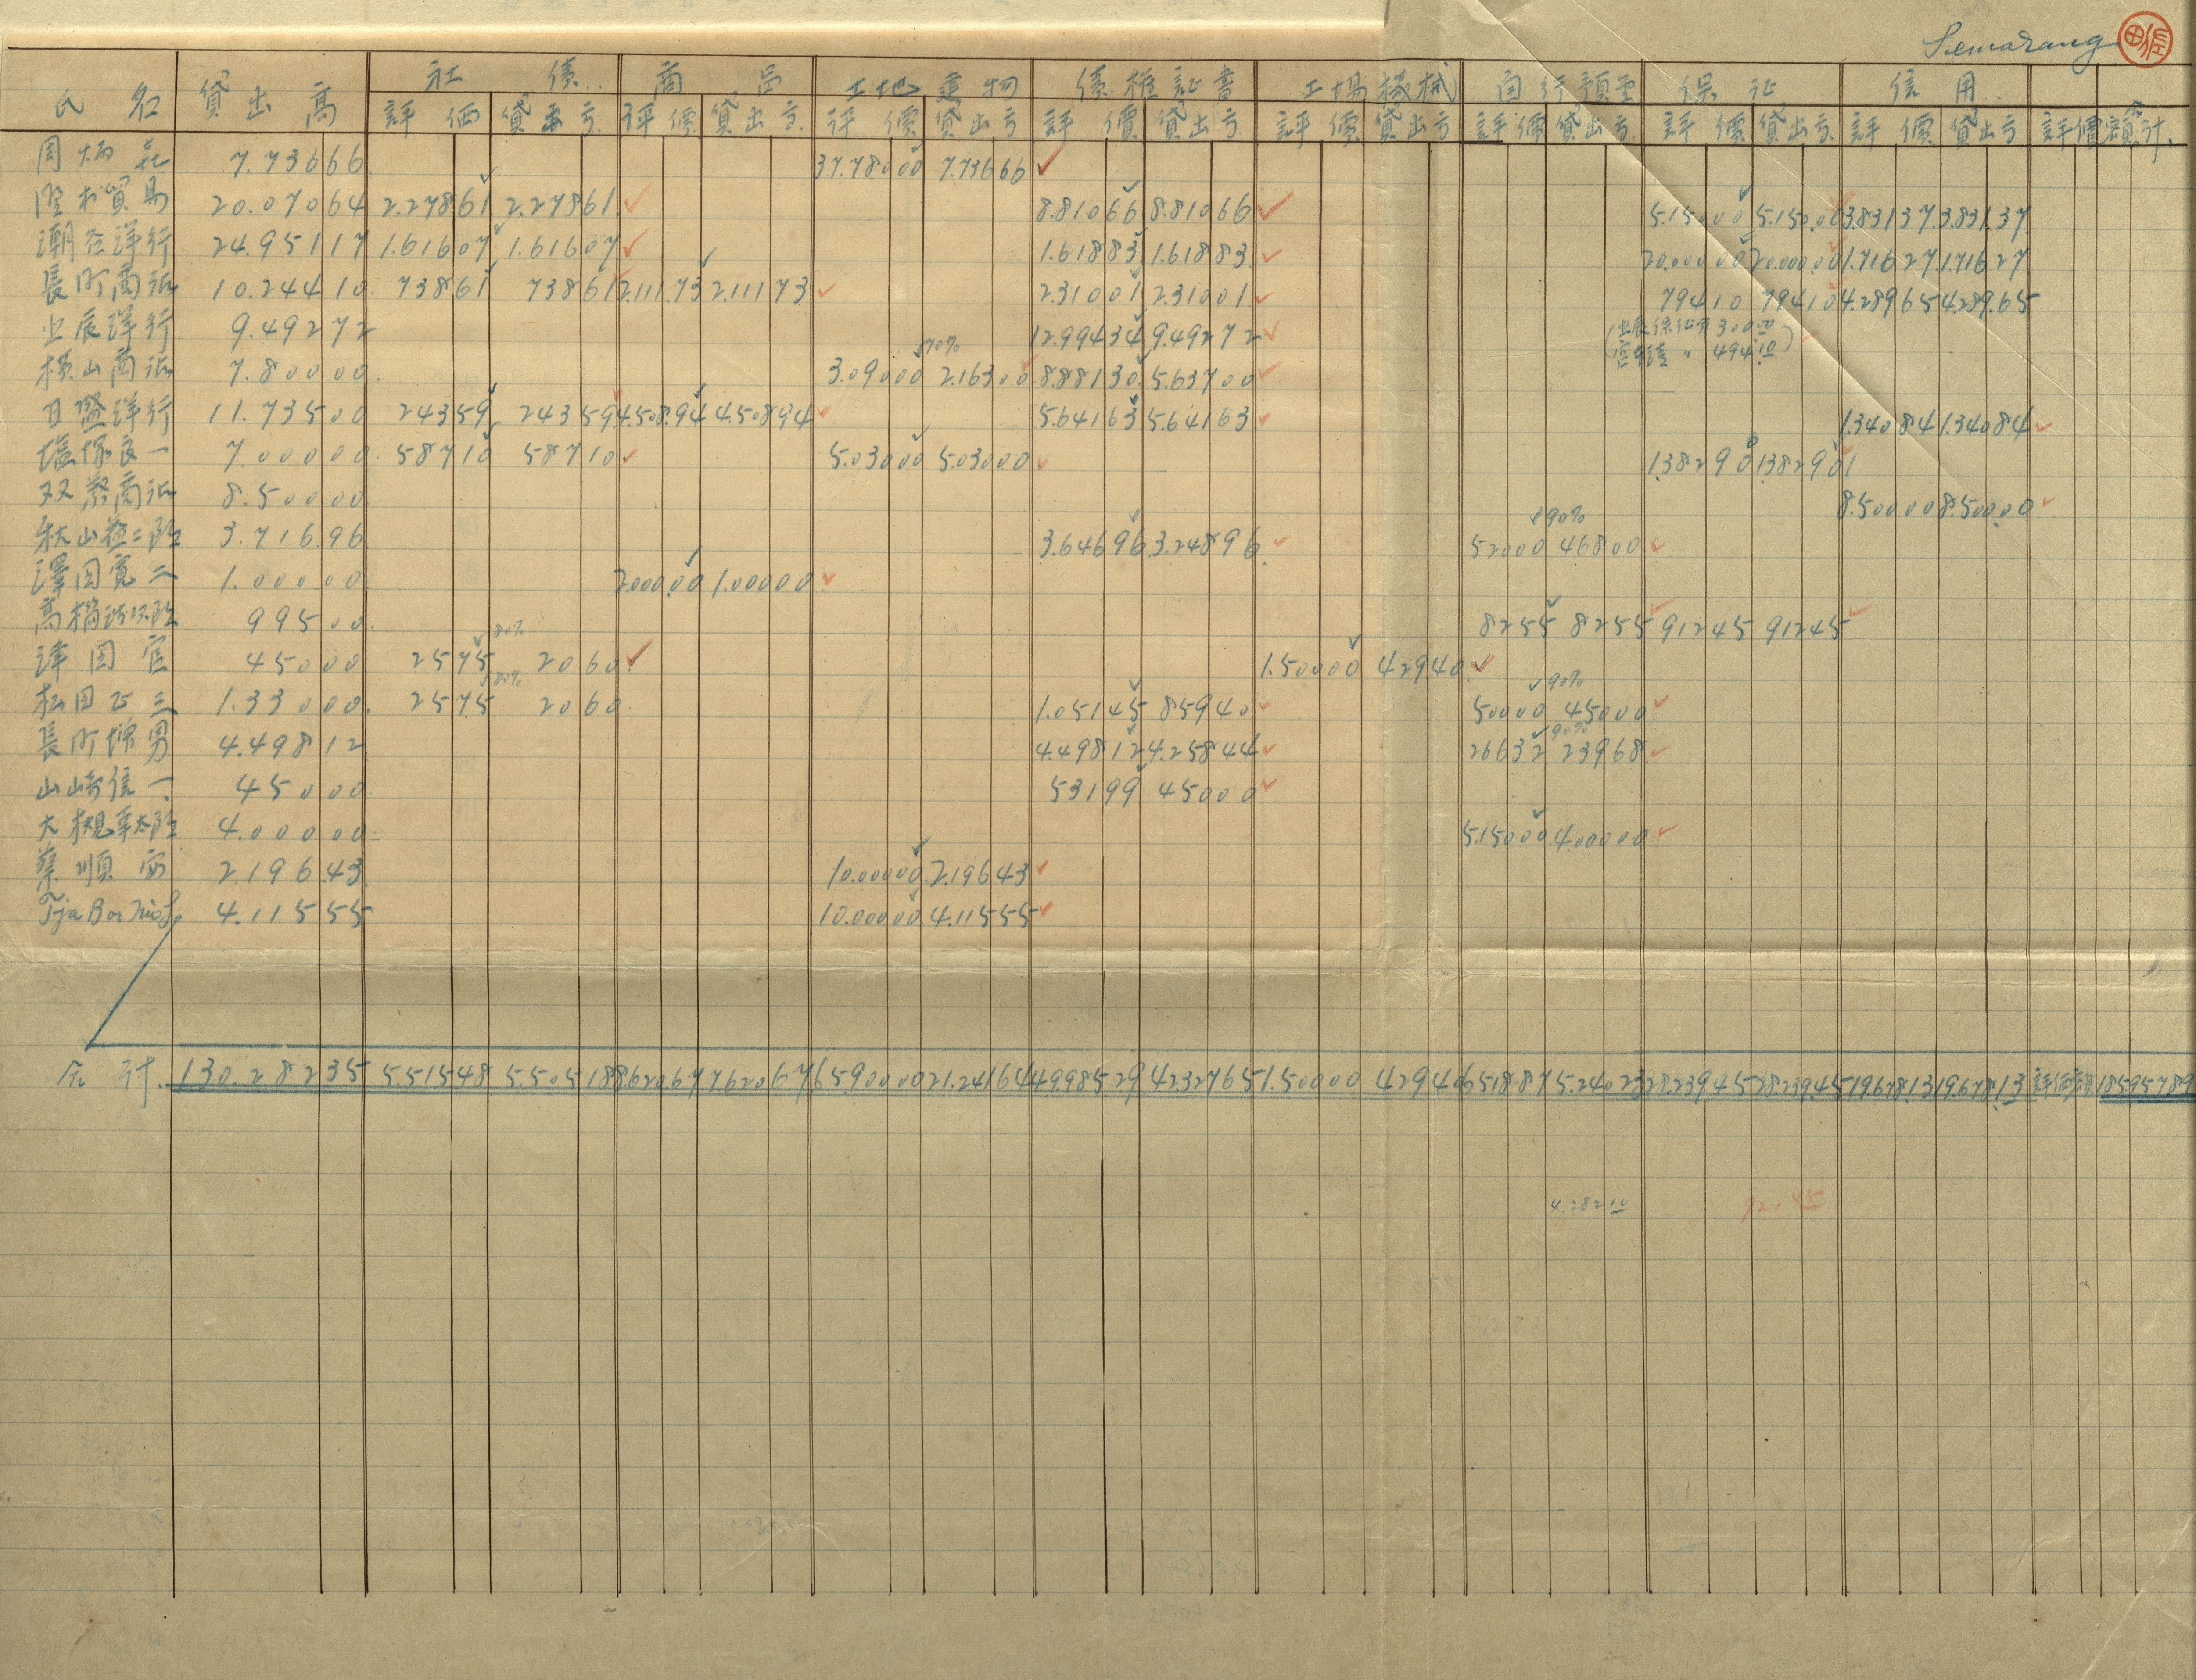 Semarang
社債 商品 土地建物 債権証書 工場機械 自行預金 保証 信用
氏名 貸出高 評価 貸出高 評價 貸出高 評價 貸出高 評價 貸出高 評價 貸出高 評價 貸出高 評價 貸出高 評價 貸出高 評價額 合計
周炳 7.736 66 37.780 00 7.736 66
貿易 20.070 64 2.278 61 2.278 61 8.810 66 8.810 66 5.150 00 5.150.00 3.831 37 3.831.37
潮谷洋行 24.951 17 1.616 07 1.616 07 1.618 83 1.618 83 20.000 00 20.000.00 1.716 27 1.716 27
長町商 10.244 10 738 61 738 61 2.111.73 2.111 73 2.310 01 2.310 01 794 10 794 10 4.289 65 4.289.65
辰洋行 9.492 72 12.994 34 9.492 72 ( 辰保証 300.00
70% 494.10 )
横山商 7.800 00 3.090 00 2.163 00 8.881 30 5.637 00
日盛洋行 11.735 00 243 59 243 59 4.508.94 4.508 94 5.641 63 5.641 63 1.340 84 1.340 84
塩塚良一 7.000 00 587 10 587 10 5.030 00 5.030 00 1.382 90 1.382 90
商 8.500 00 8.500 00 8.500.00
90%
秋山益二郎 3.716.96 3.646 96 3.248 96 520 00 468 00
澤田寛二 1.000 00 2.000.00 1.000 00
高橋 995 00 82 55 82 55 912 45 912 45
80%
津田 450 00 25 75 20 60 1.500 00 429 40
80% 90%
松田 三 1.330 00 25 75 20 60 1.051 45 859 40 500 00 450 00
90%
長町 男 4.498 12 4.498 12 4.258 44 266 32 239 68
山崎信一 450 00 531 99 450 00
大槻 4.000 00 5.150 00 4.000 00
蔡順 2.196.43 10.000 00 2.196 43
Tja Boe Nio 4.115 55 10.000 00 4.115 55
合計 130.282 35 5.515 48 5.505 18 8620 67 7620 67 65.900 00 21.241 64 49.985 29 42.327 65 1.500 00 429 40 6.518 87 5.240 23 28.239 45 28.239.45 19.678.13 19.678.13 評価額 185957 89
4.282 10 921 45